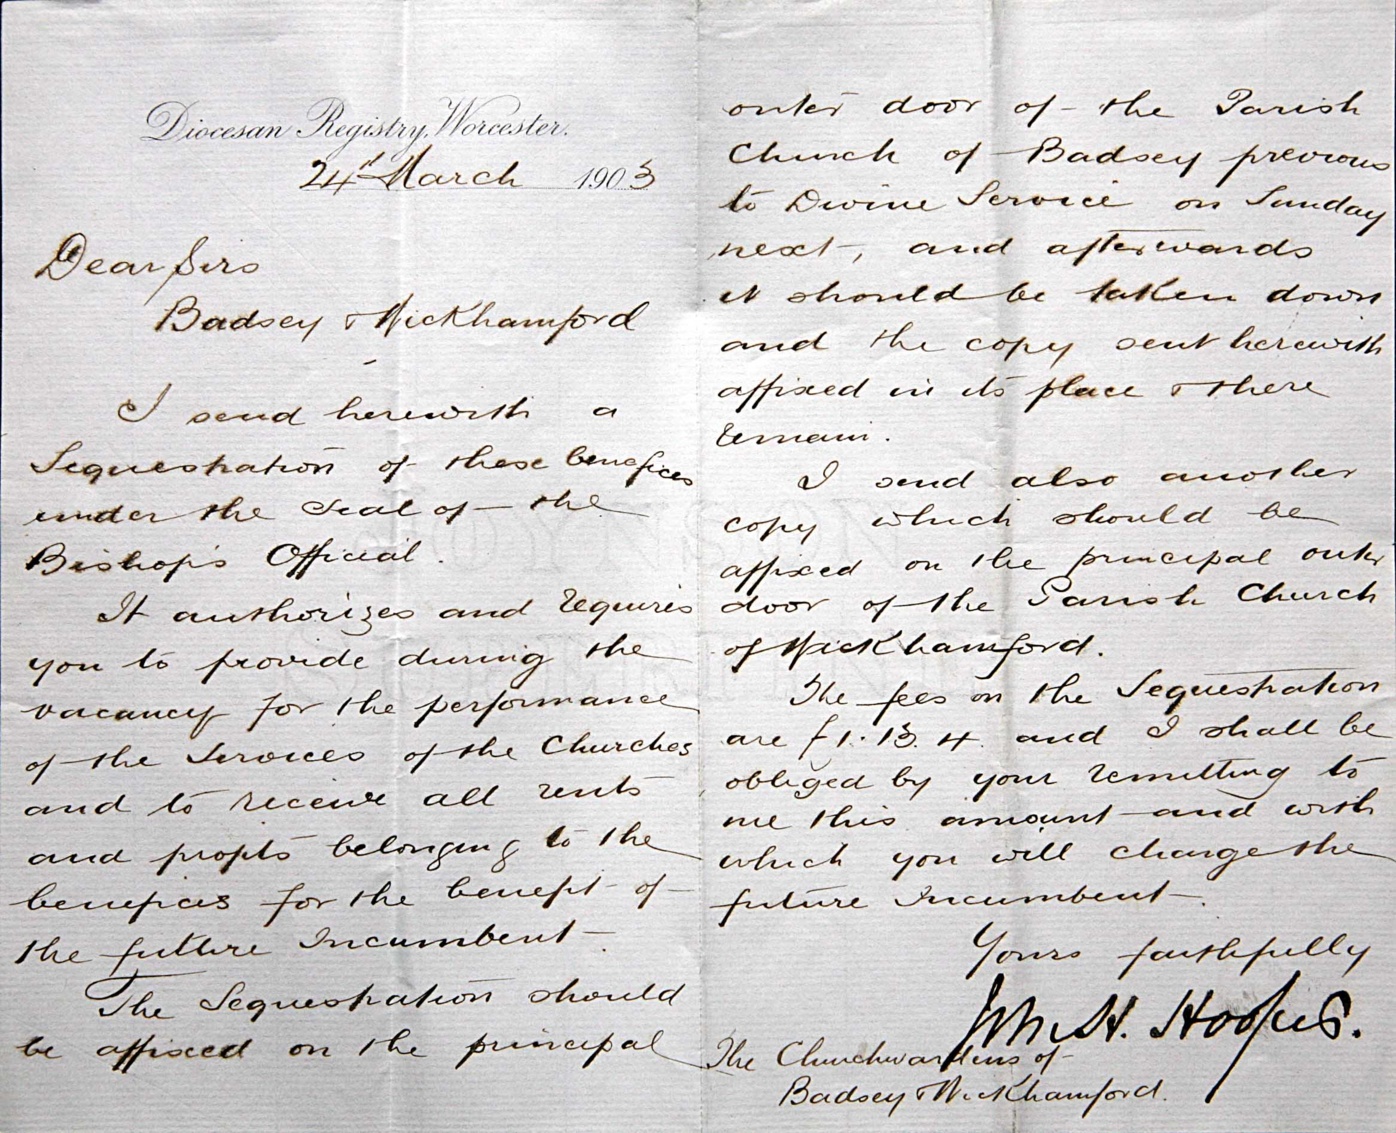 Diocesan Registry, Worcester.
24th March 1903
Dear Sirs
Badsey & Wickhamford
I send herewith a
Sequestration of these benefices
under the Seal of the
Bishop's Official.
It authorizes and requires
you to provide during the
vacancy for the performance
of the Services of the Churches
and to receive all rents
and profits belonging to the
benefices for the benefit of
the future Incumbent
The Sequestration should
be affixed on the principal
outer door of the Parish
Church of Badsey previous
to Divine Service on Sunday
next, and afterwards
it should be taken down
and the copy sent herewith
affixed in its place & there
remain.
I send also another
copy which should be
affixed on the principal outer
door of the Parish Church
of Wickhamford.
The fees on the Sequestration
are £1.13.4 and I shall be
obliged by your remitting to
me this amount and with
which you will charge the
future Incumbent.
Yours faithfully
Jno. H. Hooper.
The Churchwardens of
Badsey & Wickhamford.